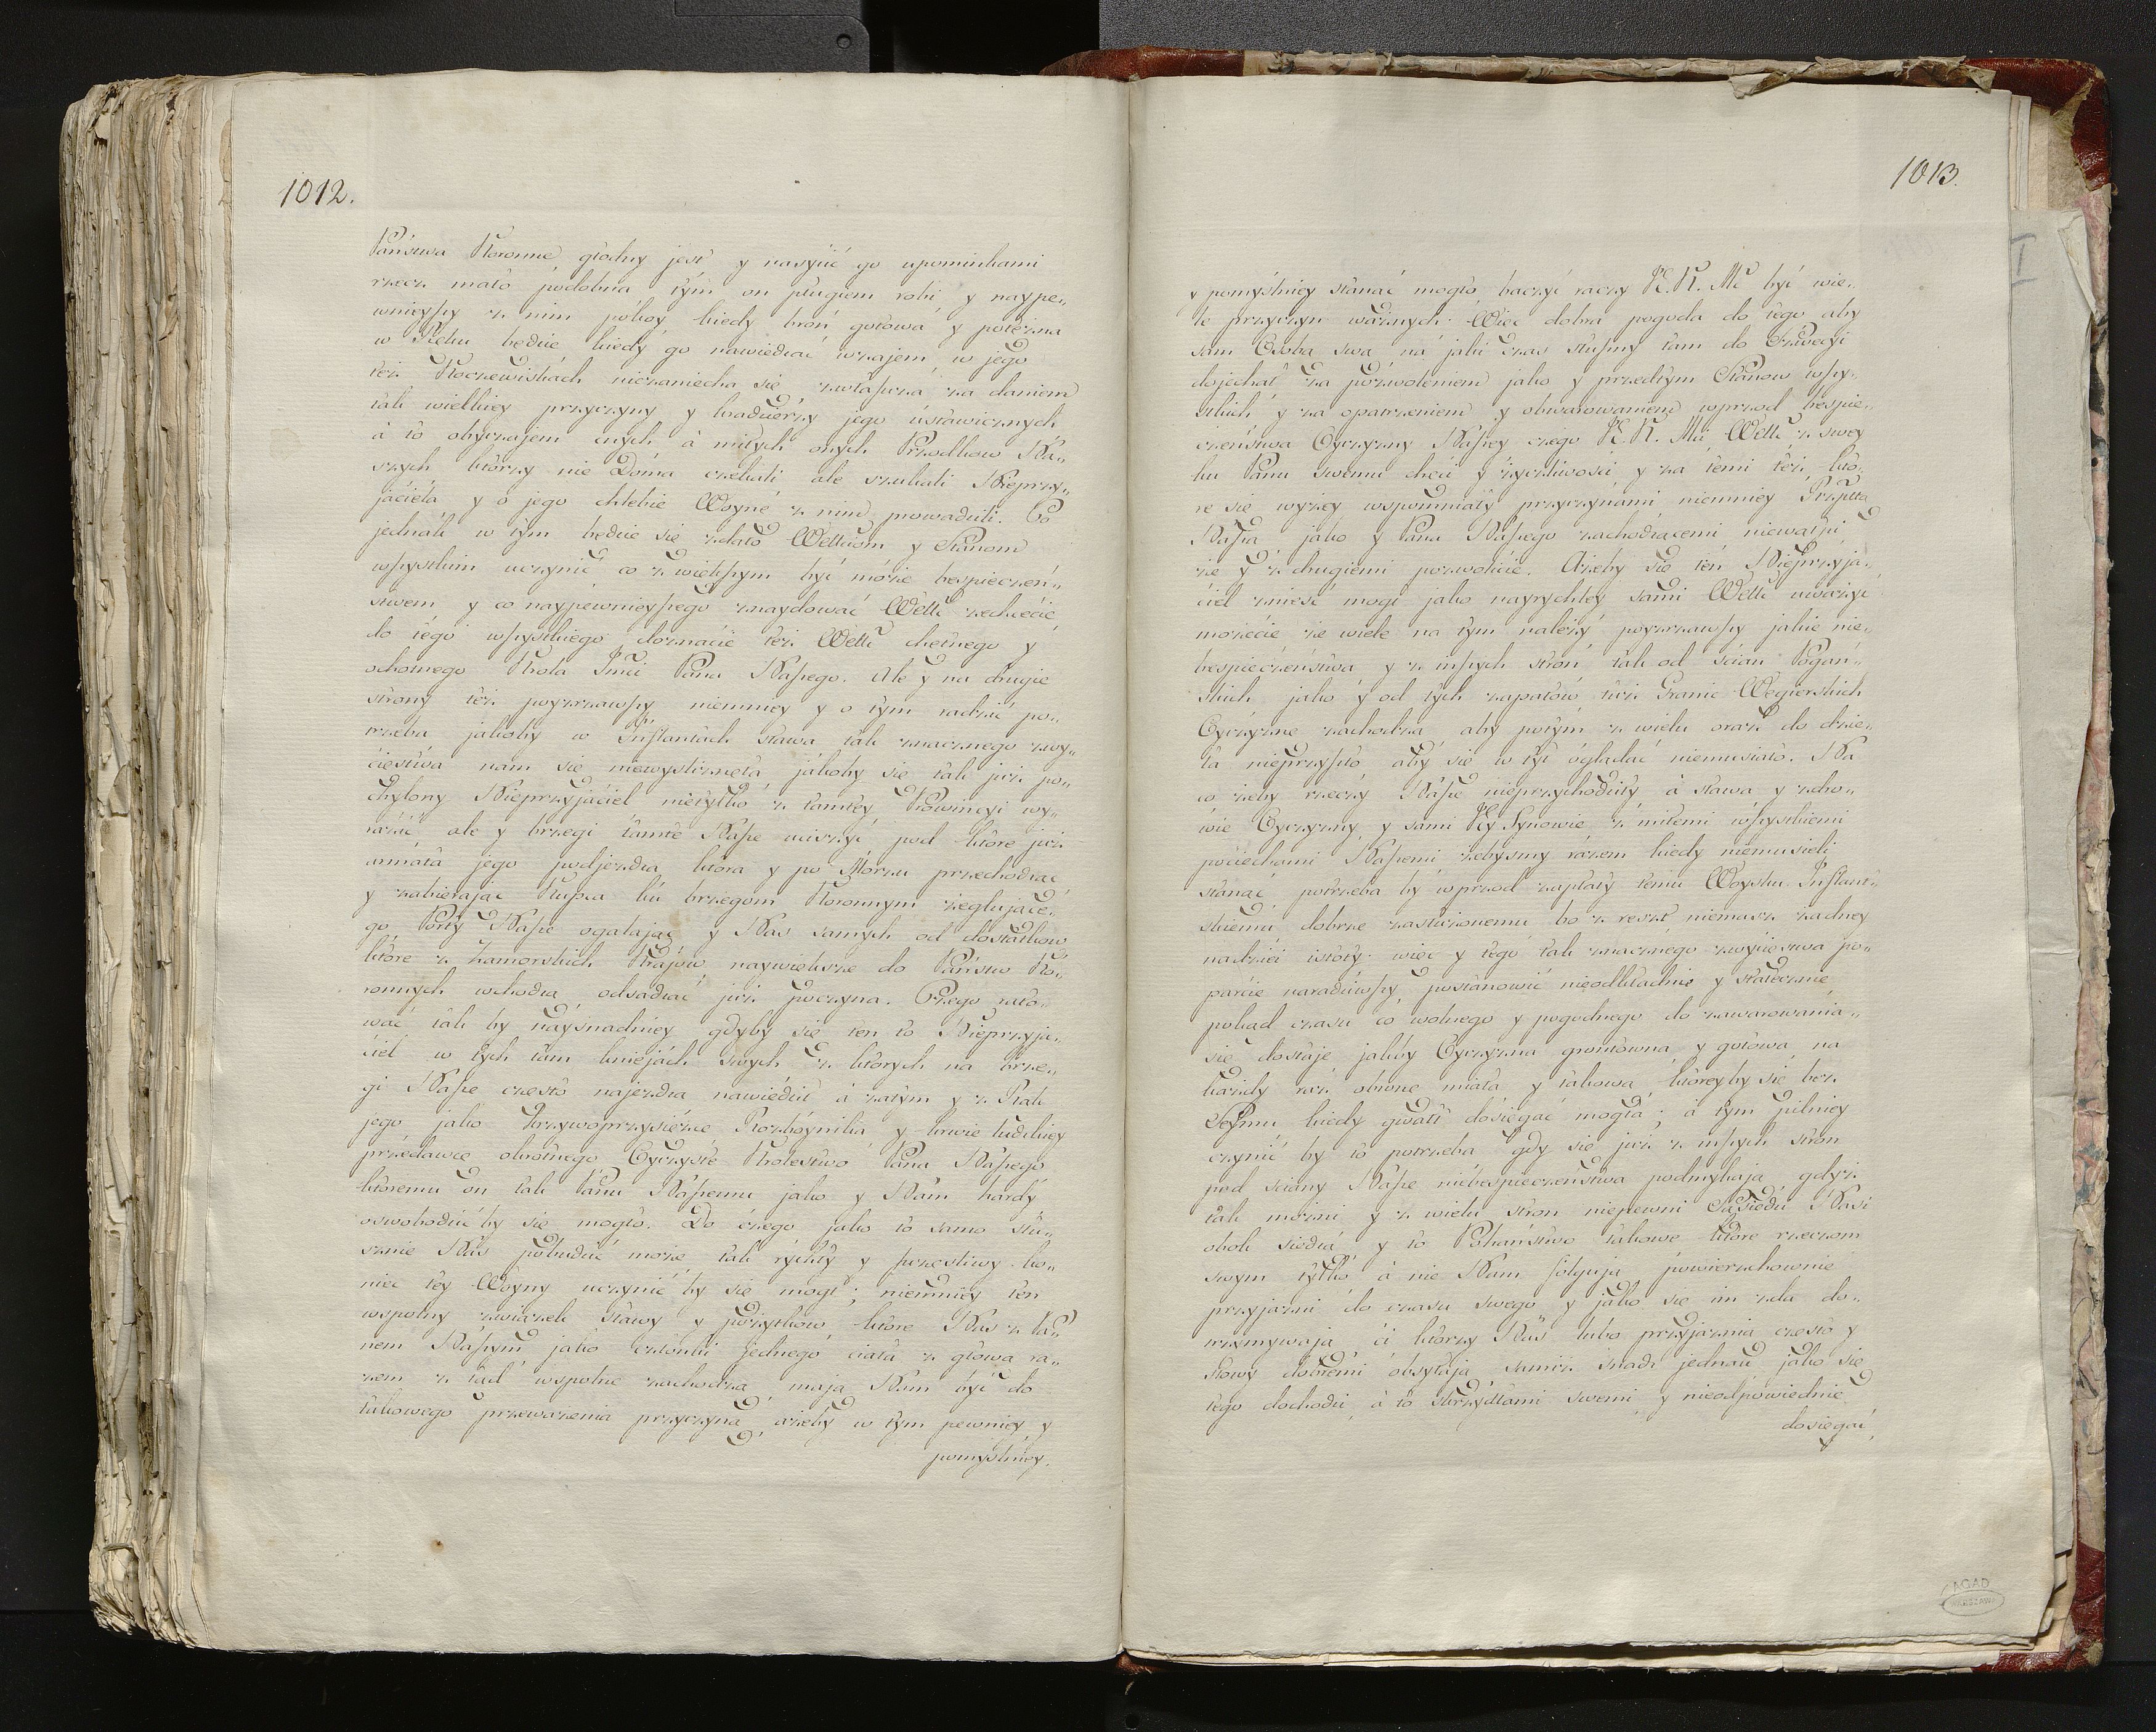 1012.
Państwa Koronne głodny jest y nasyćić go upominkami
rzecz mało podobna tym on pługiem robi, y naype„
wnieyszy z nim pokoy kiedy broń gotowa y potężna
w Ręku będzie kiedy go nawiedzać wzajem w jego
też Koczewiskach niezaniecha się, zwłaszcza za daniem
tak wielkiey przyczyny y kradzieży jego ustawicznych
á to obyczajem onych á miłych onych Przodkow Na„
szych którzy nie Doma czekali ale szukali Nieprzy„
jaćiela y o jego chlebie Woynę z nim prowadzili. Co
jednák w tym będzie się zdało WMćiom y Stanom
wszystkim uczynić co z większym być może bespieczeń„
stwem y co naypewnieyszego znaydować WMć zechcećie
do tego wszystkiego doznaćie też WMć chętnego y
ochotnego Krola Jmći Pana Naszego. Ale y na drugie
strony też poyzrzawszy niemniey y o tym radzić po„
trzeba jakoby w Inflantách sława tak znacznego zwy„
ćięstwa nam się niewysliznęła, jakoby się tak już po„
chylony Nieprzyjaćiel nietylko z tamtey Prowincyi wy„
raźić ale y brzegi tamte Nasze uiszczyć pod które już
armata jego podjezdza która y po Morzu przechodząc
y zabierając Kupca ku brzegom Koronnym żeglujące„
go Porty Nasze ogałając y Nas samych od dostatkow
które z zamorskich Krajow naywiększe do Państw Ko„
ronnych wchodzą, odsadzać już poczyna. Czego rato„
wać tak by náysnadniey gdyby się ten to Nieprzyja„
ćiel w tych tam kniejách swych z ktorych na brze„
gi Nasze często najezdza nawiedził á zatym y z Rąk
jego jako Krzywoprzysięzce Rozbóynika y krwie ludzkiey
przedawce okrotnego Oyczyste Krolestwo Pana Naszego
któremu on tak Panu Naszemu jako y Nam hardy
oswobodzić by się mogło. Do czego jako to samo słu„
sznie Nas pobudzić może tak rychły y szczęśliwy ko„
niec tey Woyny uczynić by się mogł; niemniey ten
wspolny związek Sławy y pożytkow które Nas z Pa„
nem Naszym jako członki jednego ciała z głową ra„
zem z tąd wspolne zachodzą mają Nam być do
takowego przeważenia przyczyną, ażeby w tym pewniey y
pomyślniey.
1013.
y pomyślniey stanąć mogło baczyć raczy J. K. Mć być wie„
le przyczyn ważnych. Więc dobra pogoda do tego aby
sam Osobą swą na jaki czas słuszny tam do Szwecyi
dojechał za pozwoleniem jako y przedtym Stanow wszy„
stkich y za opatrzeniem y obwarowaniem wprzod bespie„
czeństwa Oyczyzny Naszey czego J. K. Mć WMć z swey
ku Panu swemu chęci y życzliwośći y za temi też kto„
re się wyżey wspomniały przyczynami niemniey Rzpltą
Naszą jako y Pana Naszego zachodzącemi niewątpi
że y z drugiemi pozwolićie. Ażeby się ten Nieprzyja„
ćiel znieść mogł jako nayrychley sami WMć uważyć
możećie że wiele na tym należy poyzrzawszy jakie nie„
bespieczeństwa y z inszych stron tak od śćian Pogań„
skich jako y od tych zapałow tuż Granic Węgierskich
Oyczyznę zachodzą, aby potym z wielu oraz do dzie„
ła nieprzyszło aby się w tył oglądać niemusiało. Na
co żeby rzeczy Nasze nieprzychodziły á sława y zdro„
wie Oyczyzny y sami Jey Synowie z miłemi wszystkiemi
poćiechami Naszemi żebysmy razem kiedy niemusieli
stanąć, potrzeba by wprzod zapłaty temu Woysku Inflant„
skiemu dobrze zasłużonemu bo z reszt niemasz żadney
nadziei istoty. więc y tego tak znacznego zwyćięstwa po„
parcie naradziwszy postanowić nieodkładnie y statecznie
pokad czasu co wolnego y pogodnego do zawarowania„
się dostaje jakby Oyczyzna gruntowną y gotową na
każdy raz obronę miała y takową któreyby się bez
Seymu kiedy gwałt dosięgać mogła: á tym pilniey
czynić by to potrzeba gdy się już z inszych stron
pod sciany Nasze niebespieczenstwa podmykają gdyż
tak możni y z wielu stron niepewni Sąsiedzi Nasi
obok siedzą y to Pohaństwo takowe które rzeczom
swym tylko á nie Nam folgują powierzchownie
przyjazni do czasu swego y jako się im zda do„
trzymywają, ći którzy Nas lubo przyjaznią często y
słowy dobremi obsyłają samiż snadź jednak jako się
tego dochodzi, á to skrzydłami swemi y nieodpowiednie
dosiegać
I
AGAD
WARSZAWA